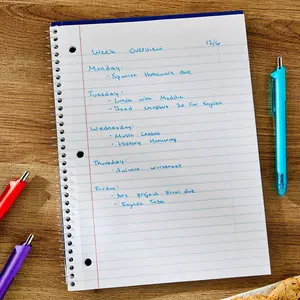 Week Overview 12/6
Monday:
- Spanish Homework due
Tuesday:
- Lunch with Maddie
- Read chapters for English
Wednesday:
- Music Lesson
- History
Thursday:
- Science
Friday:
- Art project Final due
- English